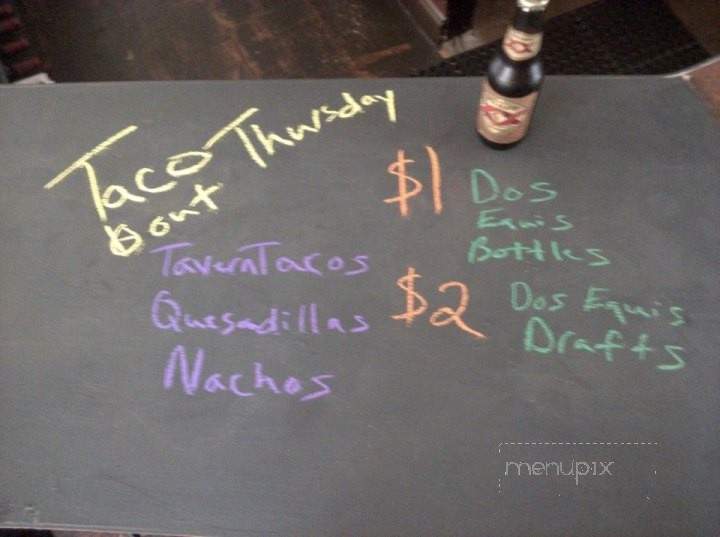 Taco Thursday
Tavern Tacos
Quesadillas
Nachos
$1 Dos
Equis
Bottles
$2 Dos Equis
Drafts
XX
XX
menupix